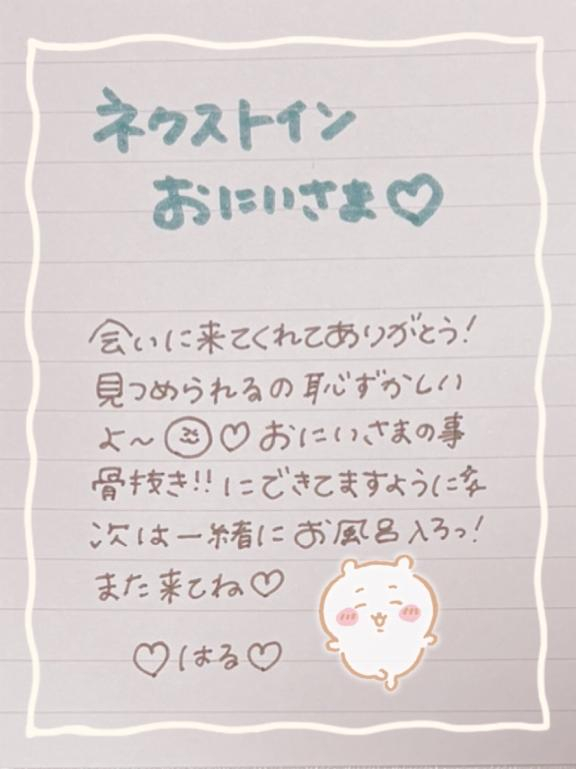 ネクストイン
おにいさま♡
会いに来てくれてありがとう!
見つめられるの恥ずかしい
よ〜♡おにいさまの事
骨抜き!!にできてますように
次は一緒にお風呂入ろっ!
また来てね♡
♡はる♡